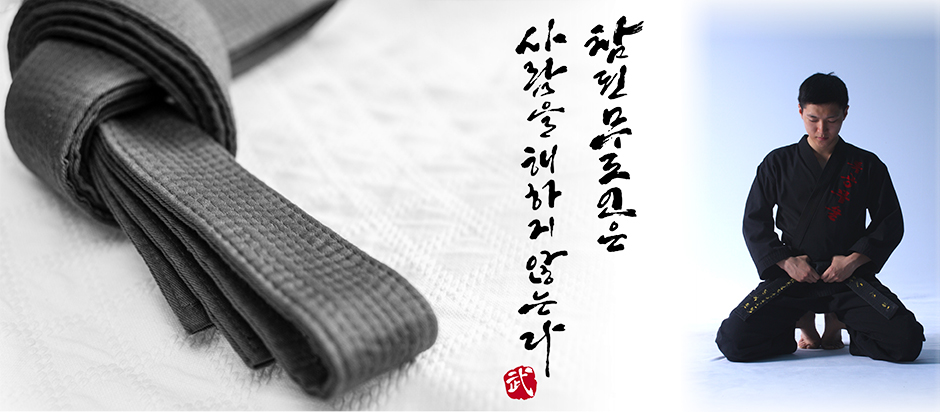 참된 무도인은
사람을 해하지 않는다
武